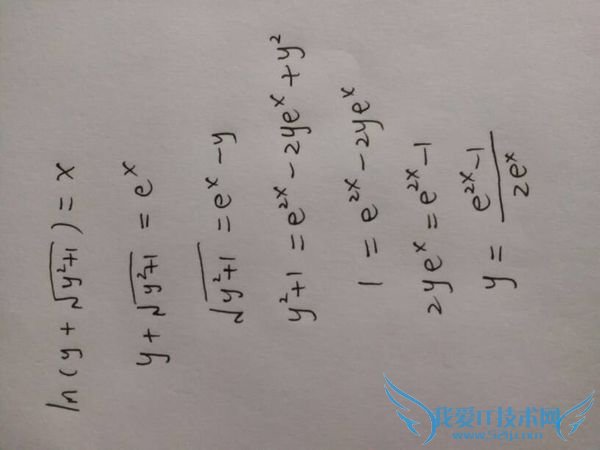 ln(y+√(y²+1))=x
y+√(y²+1)=eˣ
√(y²+1)=eˣ-y
y²+1=e²ˣ-2yeˣ+y²
1=e²ˣ-2yeˣ
2yeˣ=e²ˣ-1
y=(e²ˣ-1)/(2eˣ)
我爱IT技术网